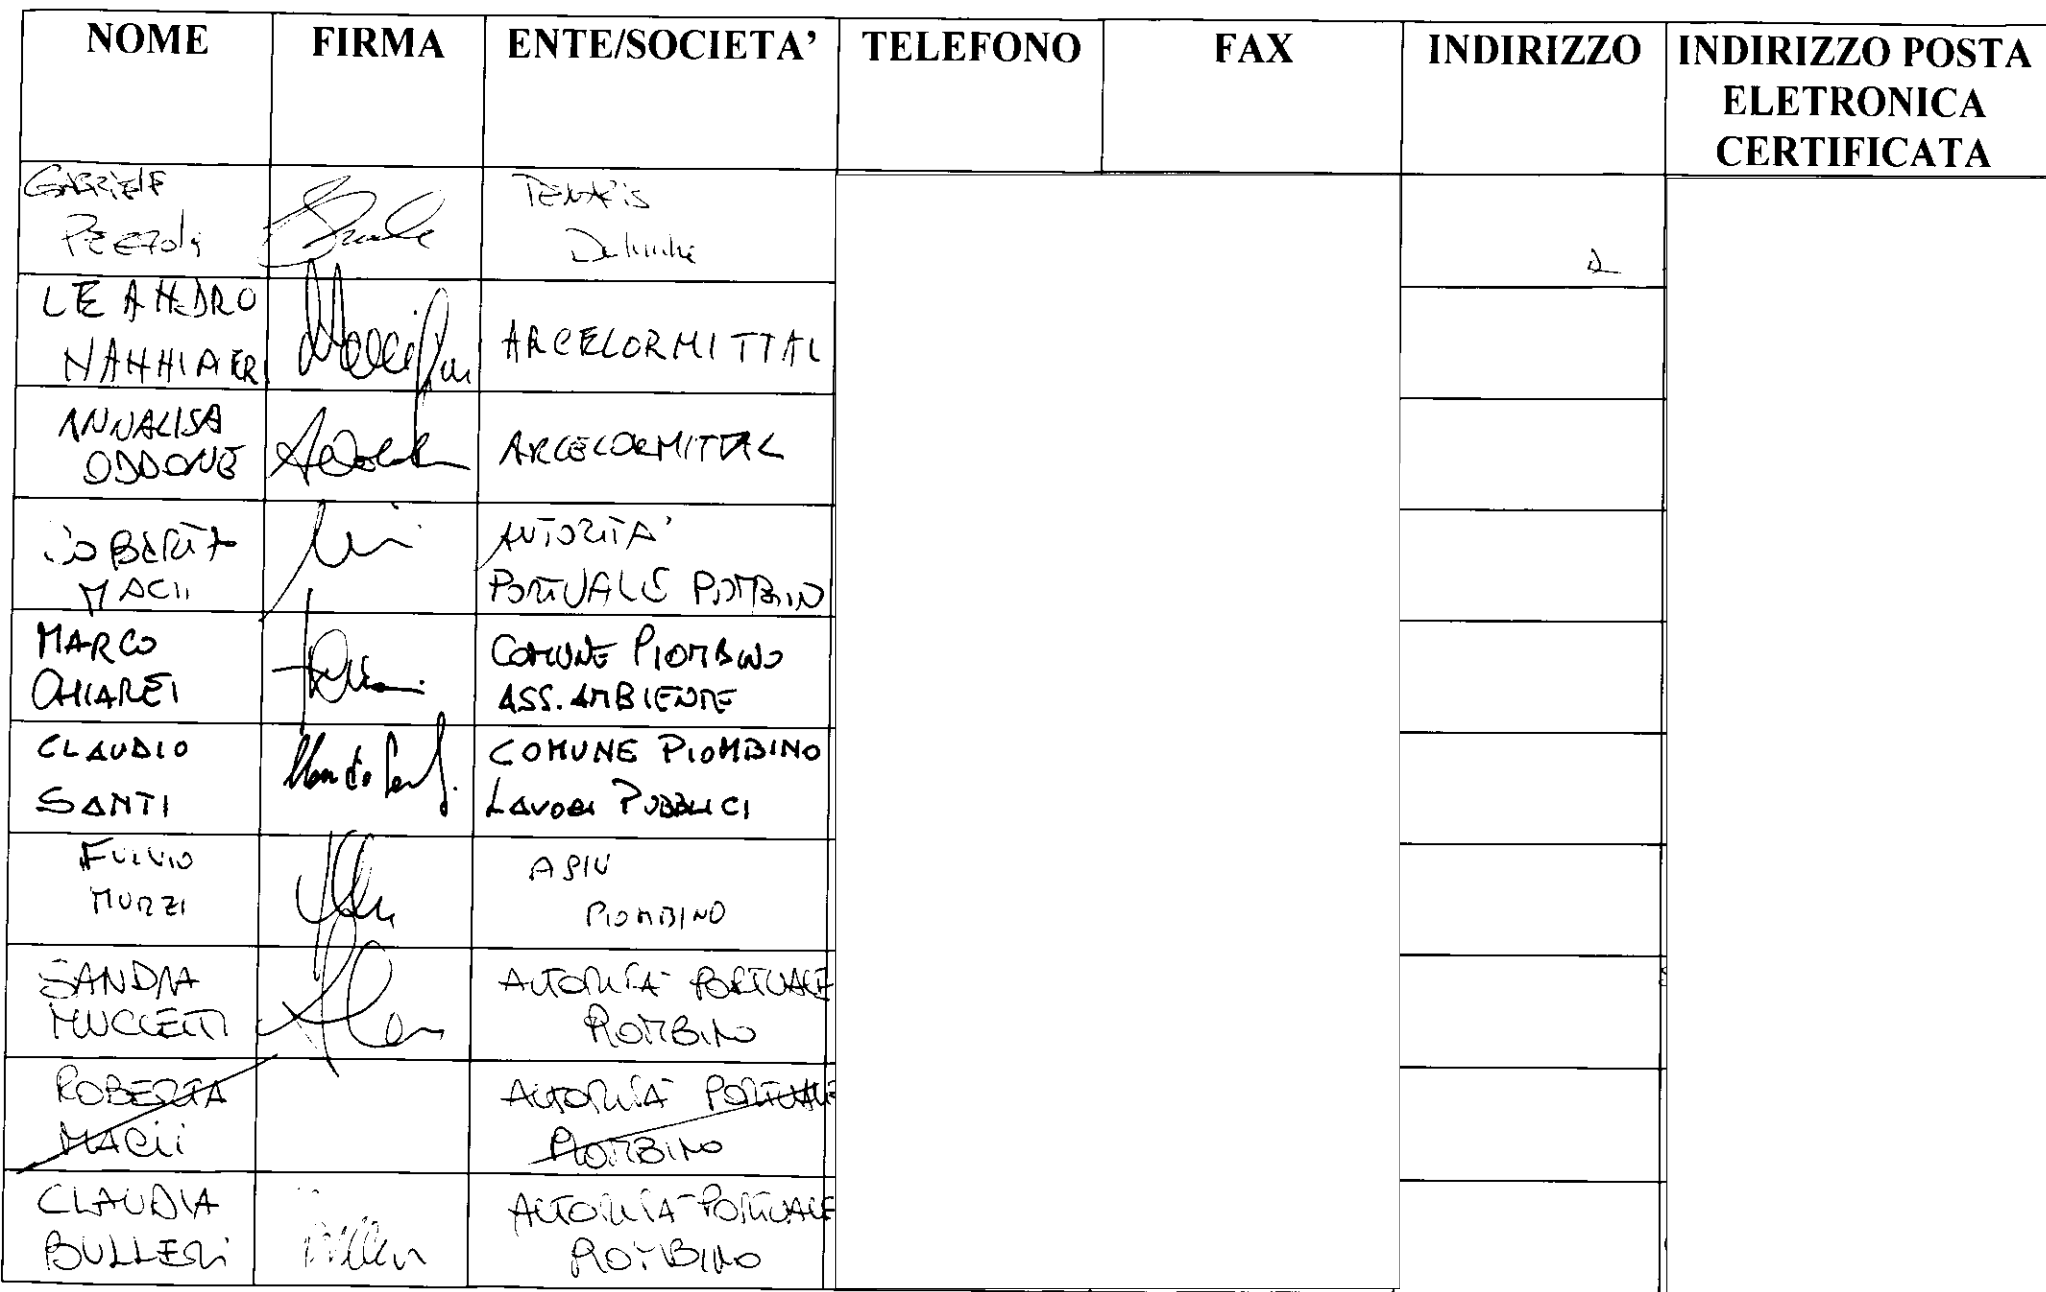 NOME FIRMA ENTE/SOCIETA' TELEFONO FAX INDIRIZZO INDIRIZZO POSTA
ELETRONICA
CERTIFICATA
GABRIELE
TENARIS
LEANDRO
NANNIPIERI
ARCELORMITTAL
ANNALISA
ODDONE
ARCELORMITTAL
ROBERTA
MACII
AUTORITA'
PORTUALE PIOMBINO
MARCO
CHIAREI
COMUNE PIOMBINO
ASS. AMBIENTE
CLAUDIO
SANTI
COMUNE PIOMBINO
LAVORI PUBBLICI
FULVIO
MURZI
ASIU
PIOMBINO
SANDRA
MUCCETTI
AUTORITA' PORTUALE
PIOMBINO
ROBERTA
MACII
AUTORITA' PORTUALE
PIOMBINO
CLAUDIA
BULLERI
AUTORITA' PORTUALE
PIOMBINO